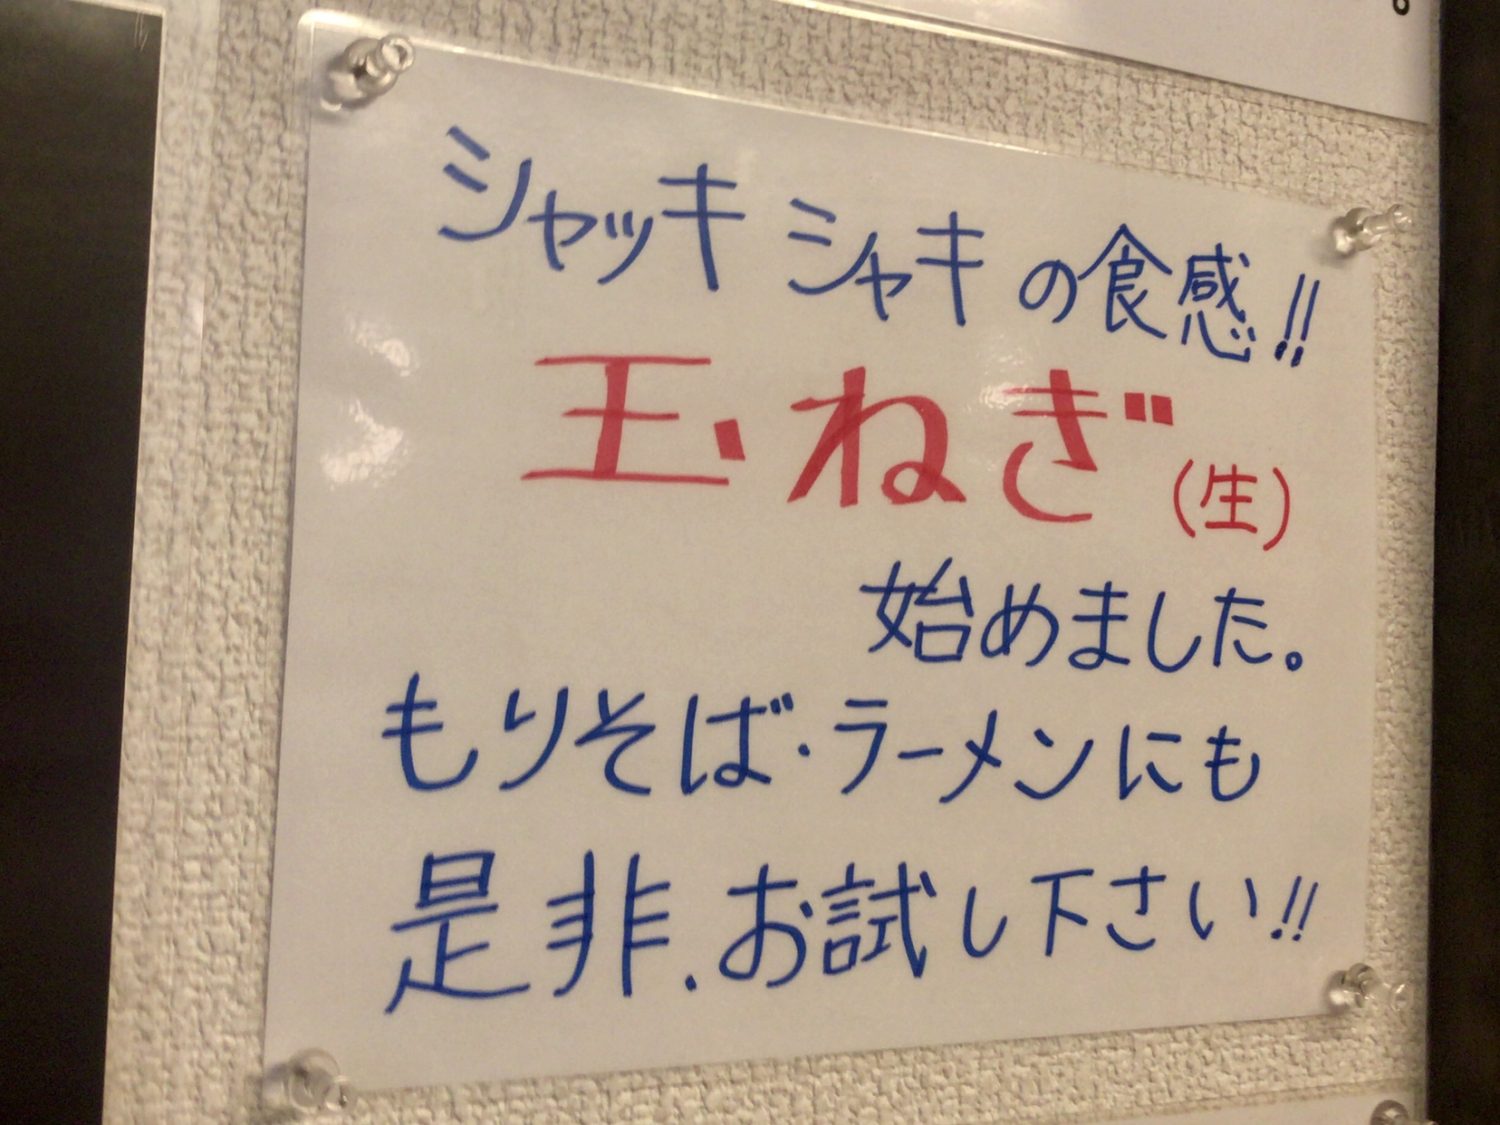 シャッキシャキの食感!!
玉ねぎ(生)
始めました。
もりそば・ラーメンにも
是非、お試し下さい!!